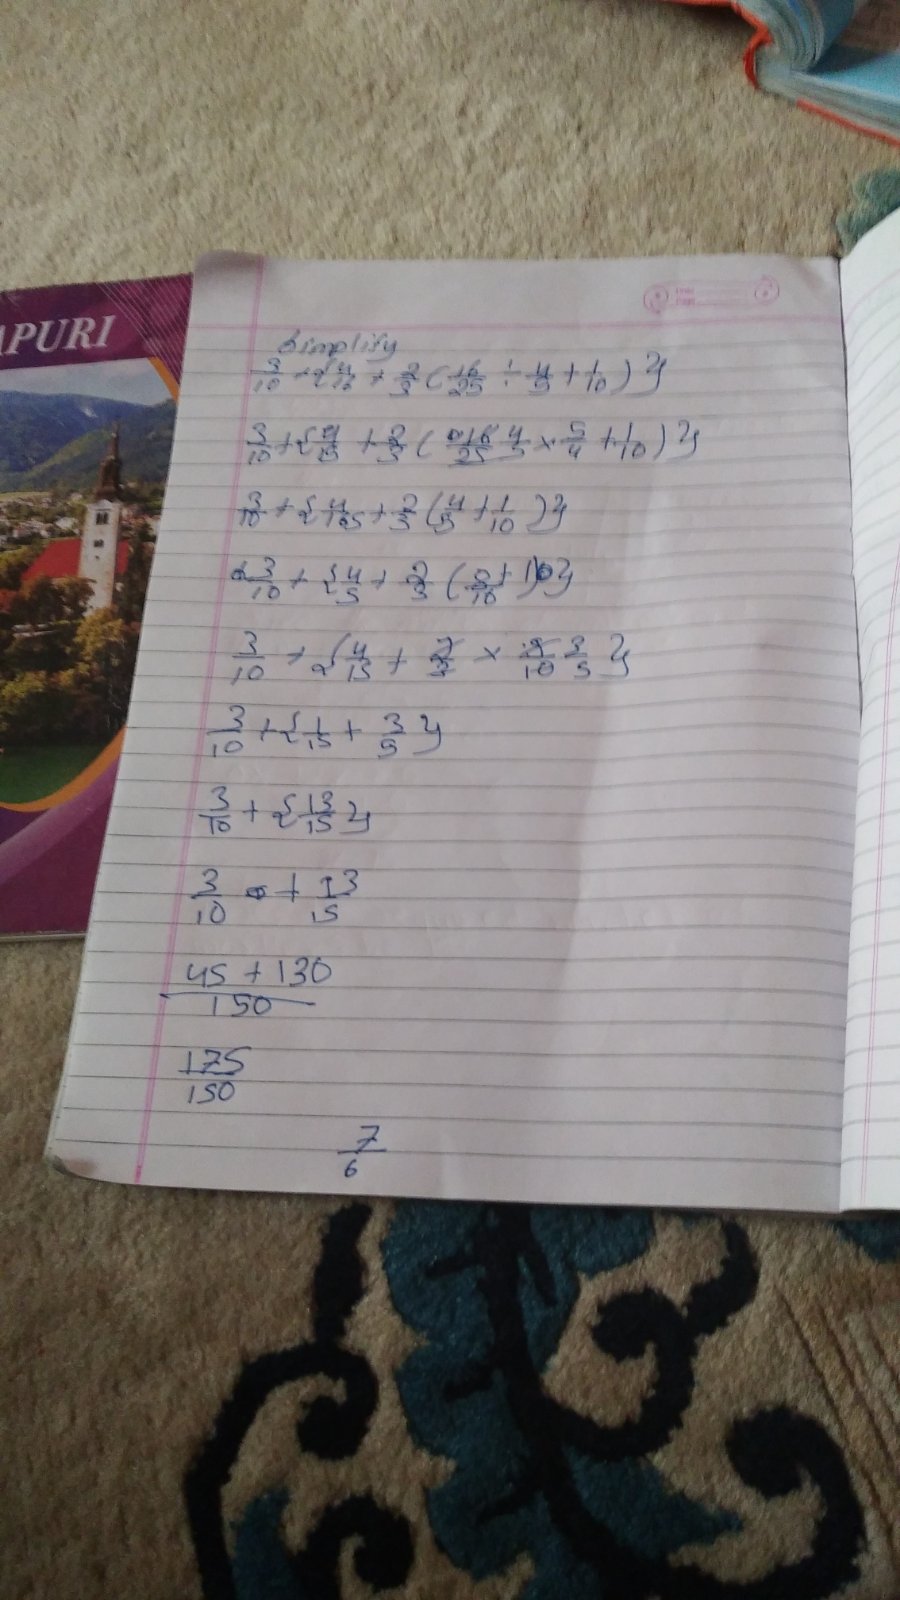 APURI
Simplify
3/10 + {4/15 + 2/3 (16/25 ÷ 4/5 + 1/10)}
3/10 + {4/15 + 2/3 (16/25 4/5 × 5/4 + 1/10)}
3/10 + {4/15 + 2/3 (4/5 + 1/10)}
3/10 + {4/5 + 2/3
3/10 + {4/15 + 2/3 × 9/10 3/5}
3/10 + {1/15 + 3/5}
3/10 + {13/15}
3/10 + 13/15
45 + 130/150
175/150
7/6